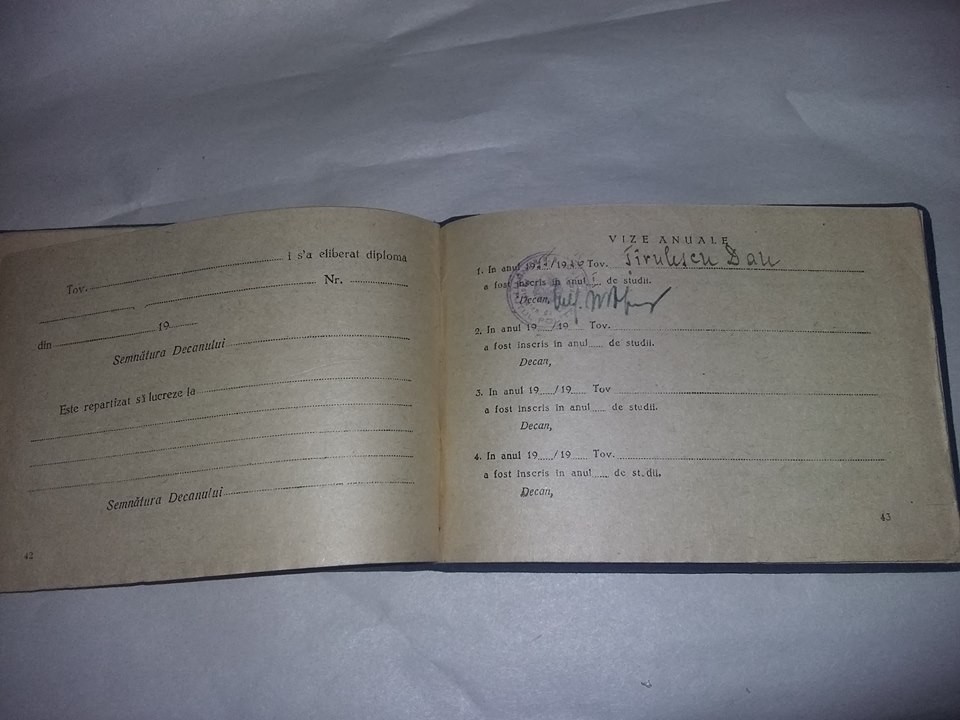 i s'a eliberat diploma
Tov.
Nr.
din 19
Semnătura Decanului
Este repartizat să lucreze la
Semnătura Decanului
42
VIZE ANUALE
1. In anul 19 /19 Tov. Tîrulescu Dan
a fost inscris in anul I de studii.
Decan,
2. In anul 19 /19 Tov.
a fost inscris in anul de studii.
Decan,
3. In anul 19 /19 Tov
a fost inscris in anul de studii.
Decan,
4. In anul 19 /19 Tov.
a fost inscris in anul de studii.
Decan,
43